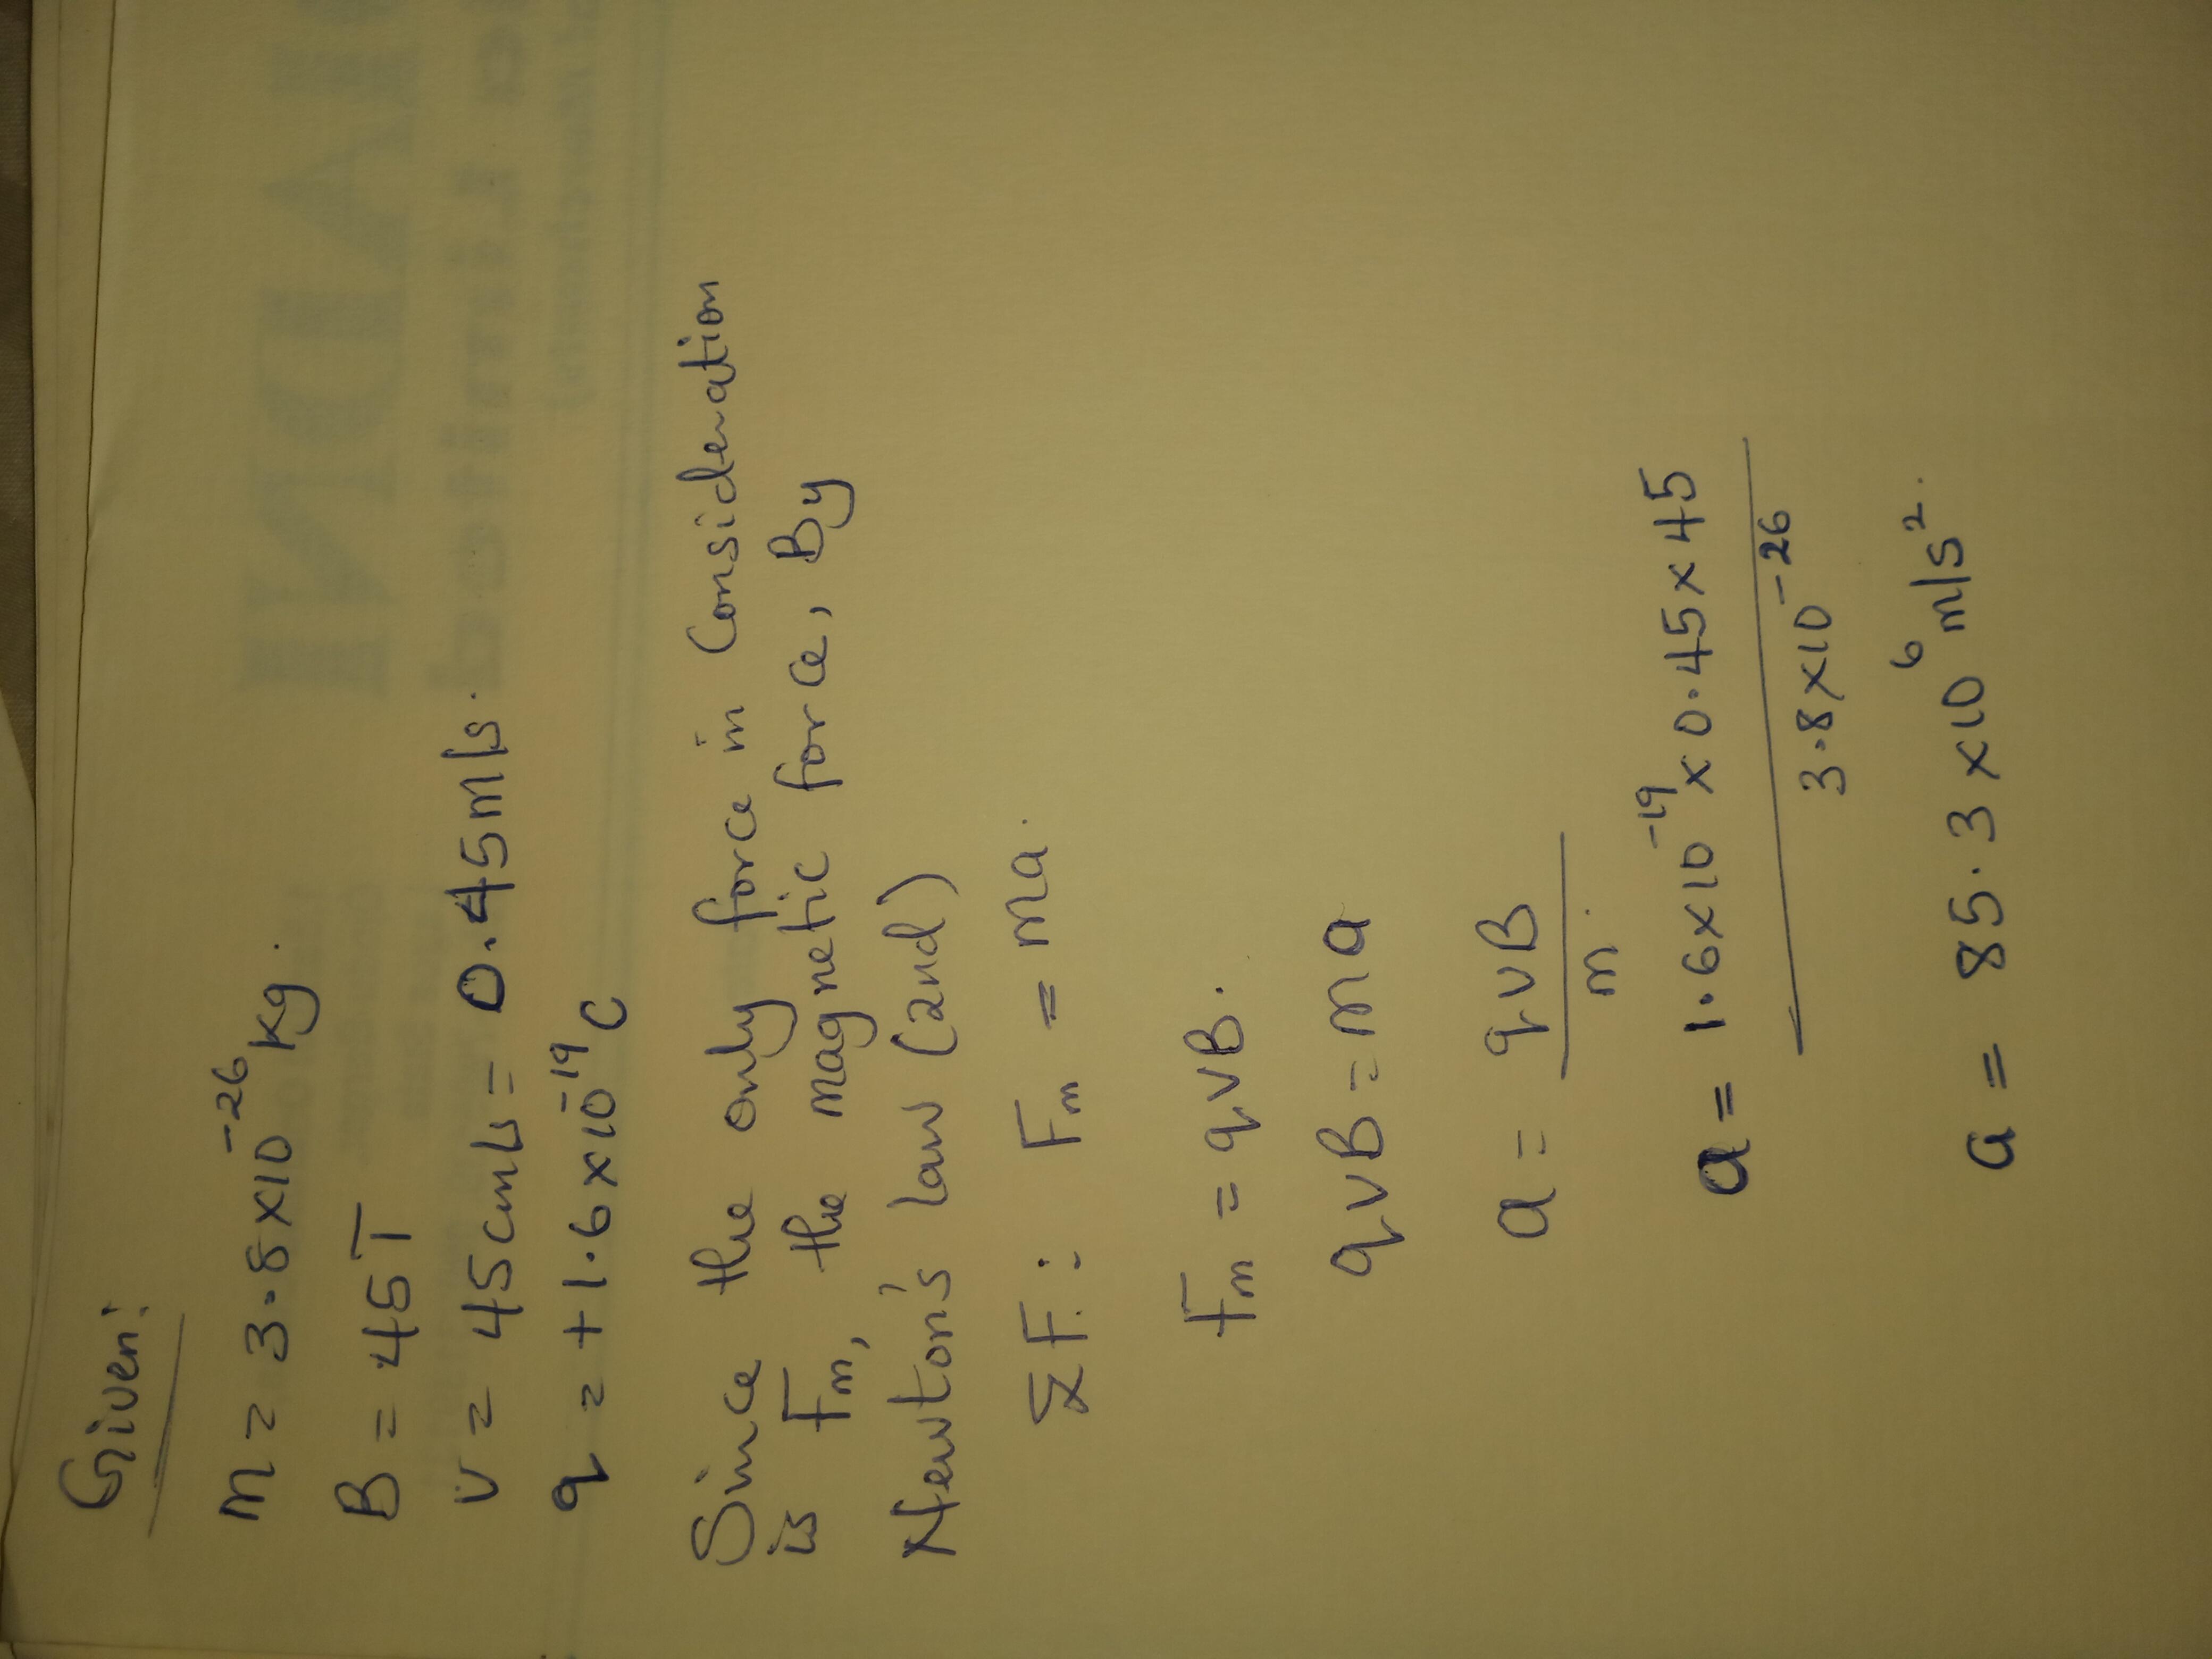 Given:
m = 3.8×10⁻²⁶ kg.
B = 45T
v = 45cm/s = 0.45m/s.
q = +1.6×10⁻¹⁹C
Since the only force in Consideration
is Fm, the magnetic force, By
Newton's law (2nd)
ΣF: Fm = ma.
Fm = qvB.
qvB = ma
a = qvB / m.
a = 1.6×10⁻¹⁹ × 0.45 × 45 / 3.8×10⁻²⁶
a = 85.3 ×10⁶ m/s².